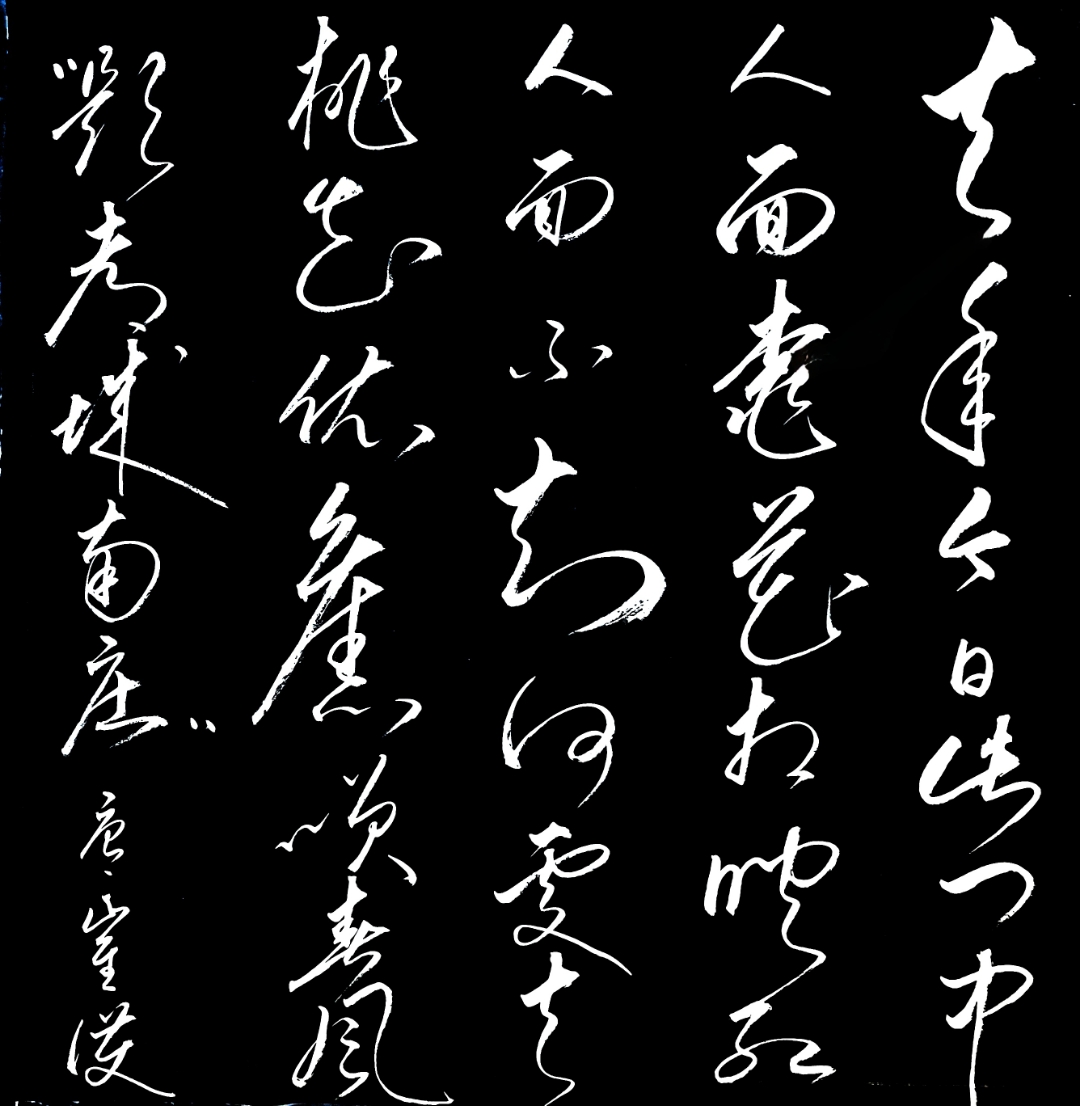 去年今日此門中
人面桃花相映紅
人面不知何處去
桃花依舊笑春風
題都城南庄 唐 崔護